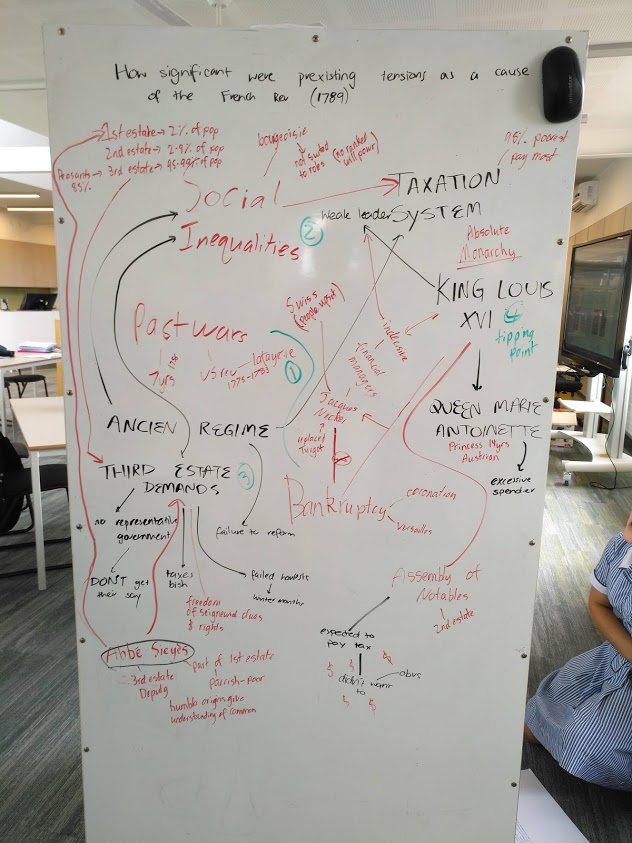 How significant were prexisting tensions as a cause
of the French Rev (1789)
1st estate → 2% of pop
2nd estate → 2-8% of pop
3rd estate → 95-99% of pop
Peasants →
85%
bourgeoisie
not suited
to roles
(no ranked
will power)
98% poorest
pay most
Social
Inequalities
②
TAXATION
SYSTEM
weak leader
Absolute
Monarchy
KING LOUIS
XVI
tipping
point
Past wars
7yrs
US rev
1775-1783
Lafayette
①
Swiss
(people upset)
indecisive
financial
managers
Jacques
Necker
replaced
Turgot
QUEEN MARIE
ANTOINETTE
Princess 14yrs
Austrian
excessive
spender
ANCIEN REGIME
THIRD ESTATE
DEMANDS
③
no representative
government
DON'T get
their say
taxes
high
freedom
of seigneurial dues
& rights
failure to reform
failed harvests
winter months
Bankruptcy
coronation
Versailles
Assembly of
Notables
2nd estate
expected to
pay tax
didn't want
to
obvs
$ $ $
$ $
Abbé Sieyès
3rd estate
Deputy
part of 1st estate
parrish-poor
humble origins give
understanding of common